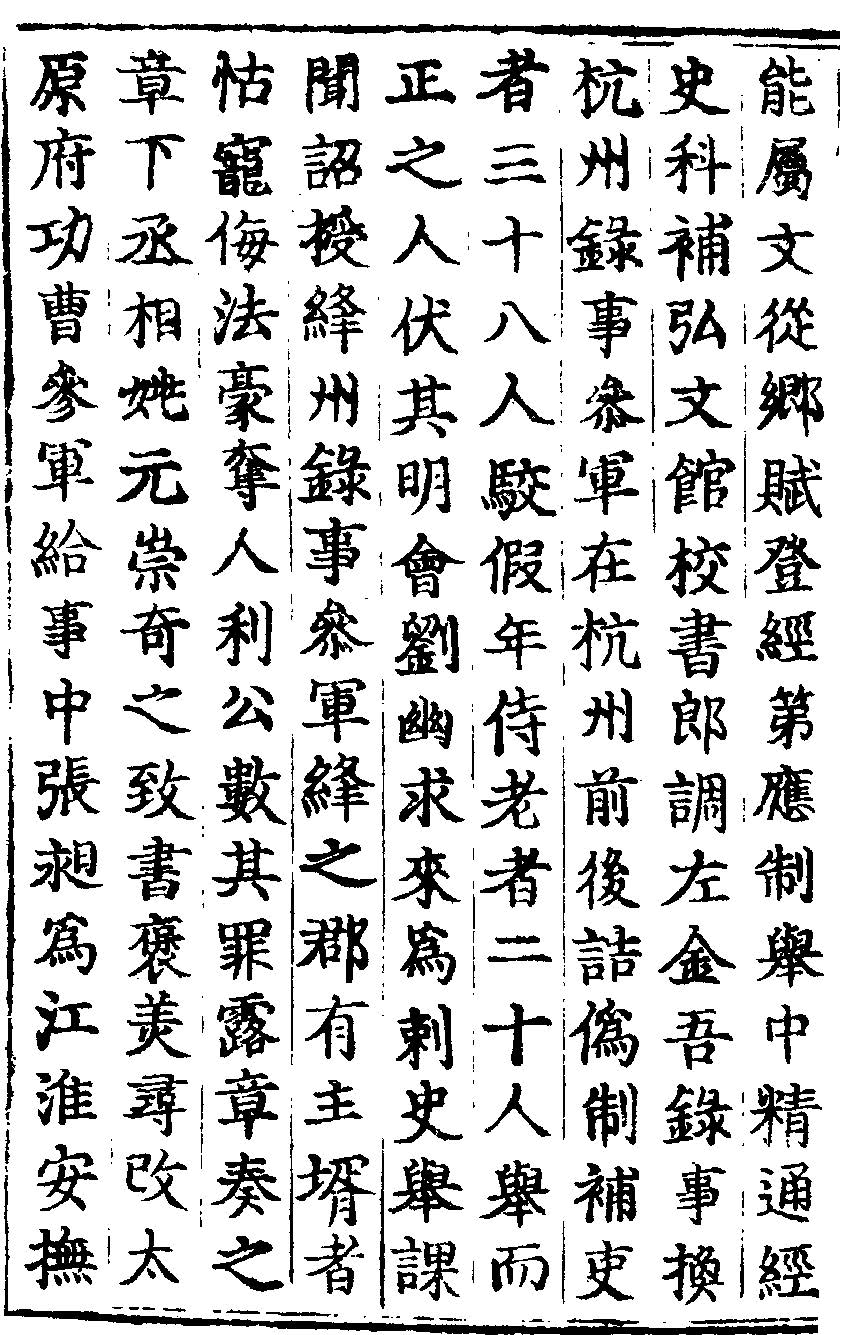 能屬文從鄉賦登經第應制舉中精通經
史科補弘文館校書郎調左金吾錄事換
杭州錄事叅軍在杭州前後詰僞制補吏
者三十八人駮假年侍老者二十人舉而
正之人伏其明會劉幽求來爲剌史舉課
聞詔授絳州錄事叅軍絳之郡有主壻者
怙寵侮法豪奪人利公數其罪露章奏之
章下丞相姚元崇奇之致書褒羙尋改太
原府功曹叅軍給事中張昶爲江淮安撫